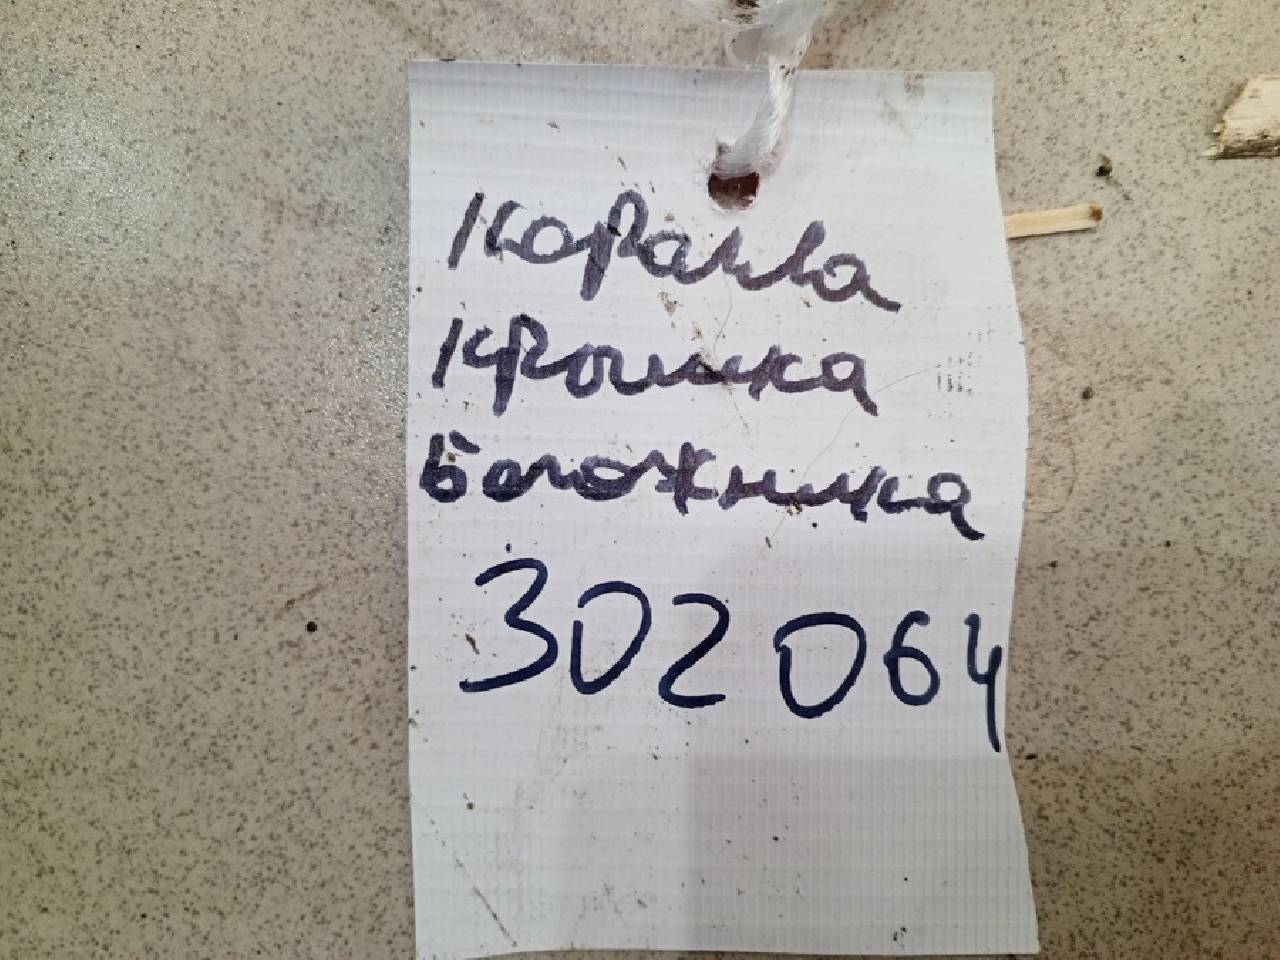 Коралла
Крышка
Богожника
302064